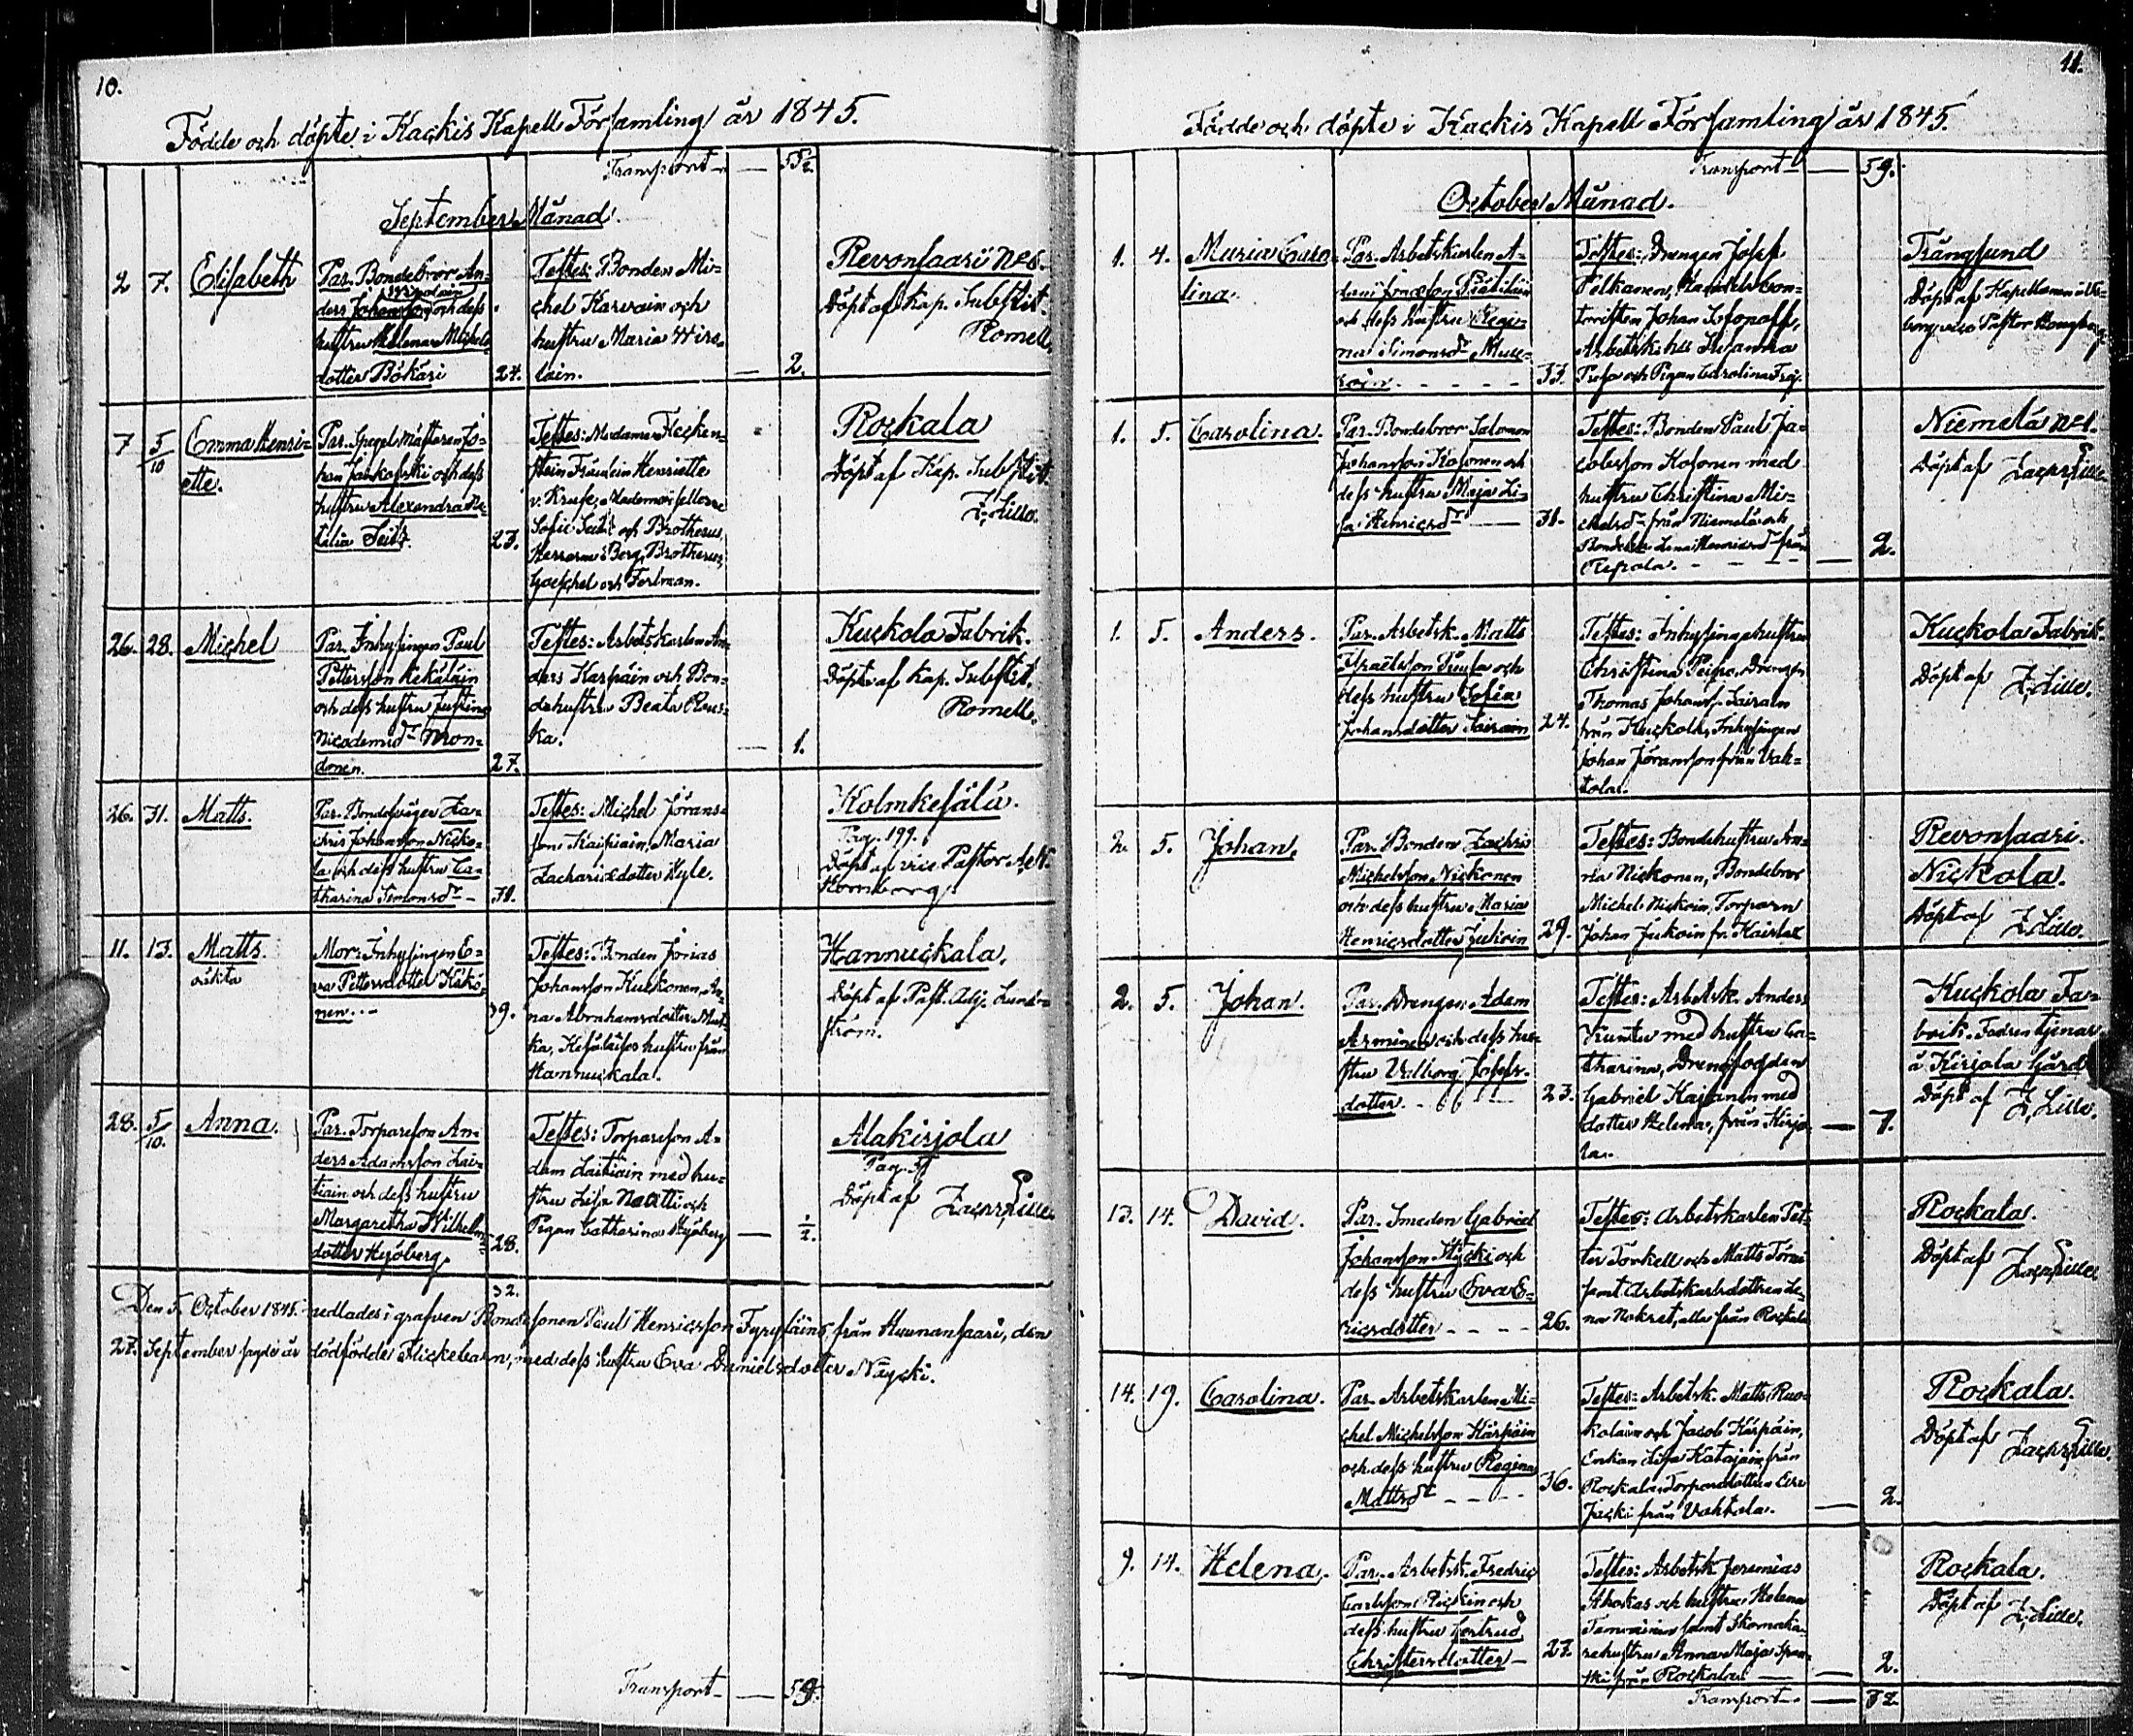 10.
Födde och döpte i Kackis Kapell Församling år 1845.
Transport — 55½
September Månad.
2 7. Elisabeth
Par. Bondebror An-
ders Johansson och dess
hustru Helena Michels
dotter Pökäri 24.
Testes: Bonden Mi-
chel Karvain och
hustru Maria Wiro-
lain. — 2.
Revonsaari No 6.
Döpt af Kap. Substit.
Romell.
7 5/10 Emma Henri-
ette.
Par. Spegelmakaren Jo-
han och dess
hustru Alexandra
Seitz. 23.
Testes: Madame
Fräulein Henriette
v. Kruse, Mademoisellerne
Sofie Seitz och Brotherus,
Herrarne Berg, Brotherus,
Goeschel och Forlman.
Rockala
Döpt af Kap. Substit.
Z. Lilio.
26. 28. Michel
Par. Inhysingen Paul
Pettersson Kekäläin
och dess hustru Justina
Nicodemidr Mon-
donen. 27.
Testes: Arbetskarlen An-
ders Karpäin och Bon-
dehustru Beata Raus-
ka. — 1.
Kuckola Fabrik.
Döpt af Kap. Substit.
Romell.
26. 31. Matts.
Par. Bondesvåger Za-
chris Johansson Nicko-
la och dess hustru Ca-
tharina Simonsdr — 31.
Testes: Michel Jörans-
son Kaipiain, Maria
Zachariedotter Kyle.
Kolmkesälä.
Pag. 199.
Döpt af vice Pastor
Homborg.
11. 13. Matts
oäkta
Mor: Inhysingen E-
va Pettersdotter Käkö-
nen. — 39.
Testes: Bonden Jonas
Johansson Kuckonen, An-
na Abrahamsdotter Mat-
ka, hustru från
Hannuckala.
Hannuckala.
Döpt af Past. Adj. Lund-
ström.
28. 5/10. Anna.
Par. Torparson An-
ders Adamsson Lai-
tiain och dess hustru
Margaretha Wilhelms
dotter Hysberg. 28.
Testes: Torparson A-
dam Laitiain med hu-
stru Lisa Naatti och
Pigan Catharina Hysberg — ½.
Alakirjola
Pag. 37
Döpt af Zachr Lilio
32.
Den 5. October 1845. nedlades i grafven Bondesonen Paul Henricsson från Huunansaari, den
27. September sagde år dödfödde Flickebarn, med dess hustru Eva Danielsdotter Näycki.
Transport — 59.
11.
Födde och döpte i Kackis Kapell Församling år 1845.
Transport — 59.
October Månad.
1. 4. Maria Caro-
lina.
Par. Arbetskarlen A-
dam Jonasson
och dess hustru Regi-
na Simonsdr Mus-
33.
Testes: Drengen Josef
Pelkanen, Handels Con-
toristen Johan
Arbetsk. hu. Susanna
och Pigan Carolina
Trångsund
Döpt af Kapellanen i
vice Pastor Homborg
1. 5. Carolina.
Par. Bondebror Salomon
Johansson Kosonen och
dess hustru Maja Li-
sa Henricsdr — 31.
Testes: Bonden Paul Ja-
cobsson Kosonen med
hustru Christina Mi-
chelsdr från Niemelä och
Bondehu. Lena Henricsdr från
Repola. — 2.
Niemelä No 1.
Döpt af Zachr Lilio
1. 5. Anders.
Par. Arbetsk. Matts
Israëlsson Puusa och
dess hustru Sofia
Johansdotter Sairain 24.
Testes: Inhysingehustru
Christina Peipo, Drengen
Thomas Johanss. Sairain
från Kuckola, Inhysingen
Johan Jöransson från Vah-
tola.
Kuckola Fabrik.
Döpt af Z. Lilio.
2. 5. Johan.
Par. Bonden Zachris
Michelsson Nickonen
och dess hustru Maria
Henricsdotter Jukoin 29.
Testes: Bondehustru Ma-
ria Nickonen, Bondebror
Michel Nickoin, Torparn
Johan Jukoin fr. Kaislax
Revonsaari.
Nickola.
Döpt af Z. Lilio.
2. 5. Johan.
Par. Drengen Adam
Arminen och dess hu-
stru Valborg Josefs-
dotter. — 23.
Testes: Arbetsk. Anders
Kuntu med hustru Ca-
tharina, Drengfogden
Gabriel Kajanen med
dotter Helena, från Kirjo-
la. — 7.
Kuckola Fa-
brik. Fadren tjenar
å Kirjola Gård
Döpt af Z. Lilio.
13. 14. David.
Par. Smeden Gabriel
Johansson Hycki och
dess hustru Eva E-
ricsdotter — 26.
Testes: Arbetskarlen Pet-
ter Torkell och Matts
samt Arbetskarlsdottren Le-
na Nokret, alla från Rockala
Rockala.
Döpt af Zachr Lilio
14. 19. Carolina.
Par. Arbetskarlen Mi-
chel Michelsson Kärpäin
och dess hustru Regina
Mattsdr — 36.
Testes: Arbetsk. Matts Ruo-
kolain och Jacob Kärpäin,
Enkan Lisa Katajain från
Rockala, Torparedottren
Jäcki från Vahtola. — 2.
Rockala.
Döpt af Zachr Lilio.
9. 14. Helena.
Par. Arbetsk. Fredric
Carlsson Rickin och
dess hustru Gertrud
Christersdotter — 27.
Testes: Arbetsk. Jeremias
Ahokas och hustru Helena
Tanninen samt Skomaka-
rehustru Anna Maja
från Rockala. — 2.
Rockala.
Döpt af Z. Lilio.
Transport — 72